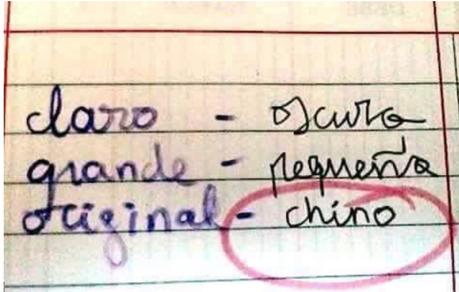 claro - oscuro
grande - pequeña
original - chino